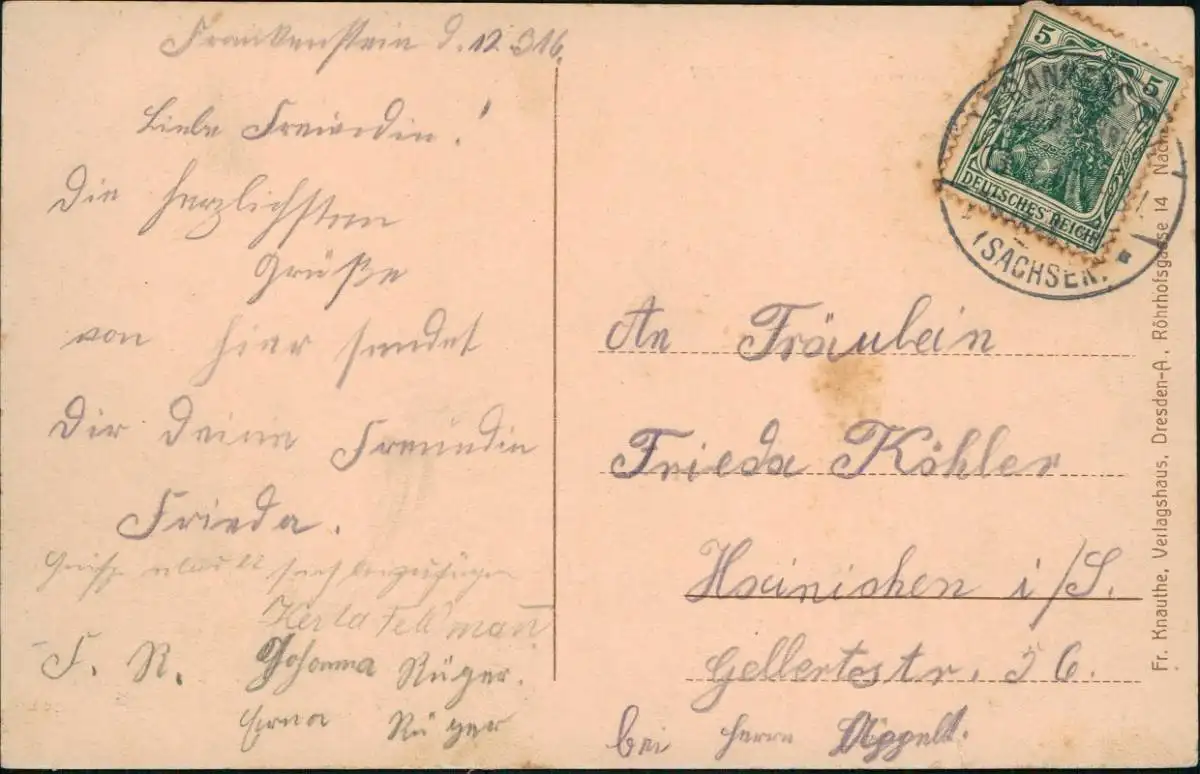 Frankenstein d. 12. 3 16.
Liebe Freundin!
Die herzlichsten
Grüße
von hier sendet
Dir Deine Freundin
Frieda.
erlaubt sich beizufügen
Herta
F. R. Johanna Rüger.
Erna Rüger
5 5
DEUTSCHES REICH
(SACHSEN)
An Fräulein
Frieda Köhler
Hainichen i/S.
Gellertstr. 36.
bei Herrn
Fr. Knauthe, Verlagshaus, Dresden-A, Röhrhofsgasse 14